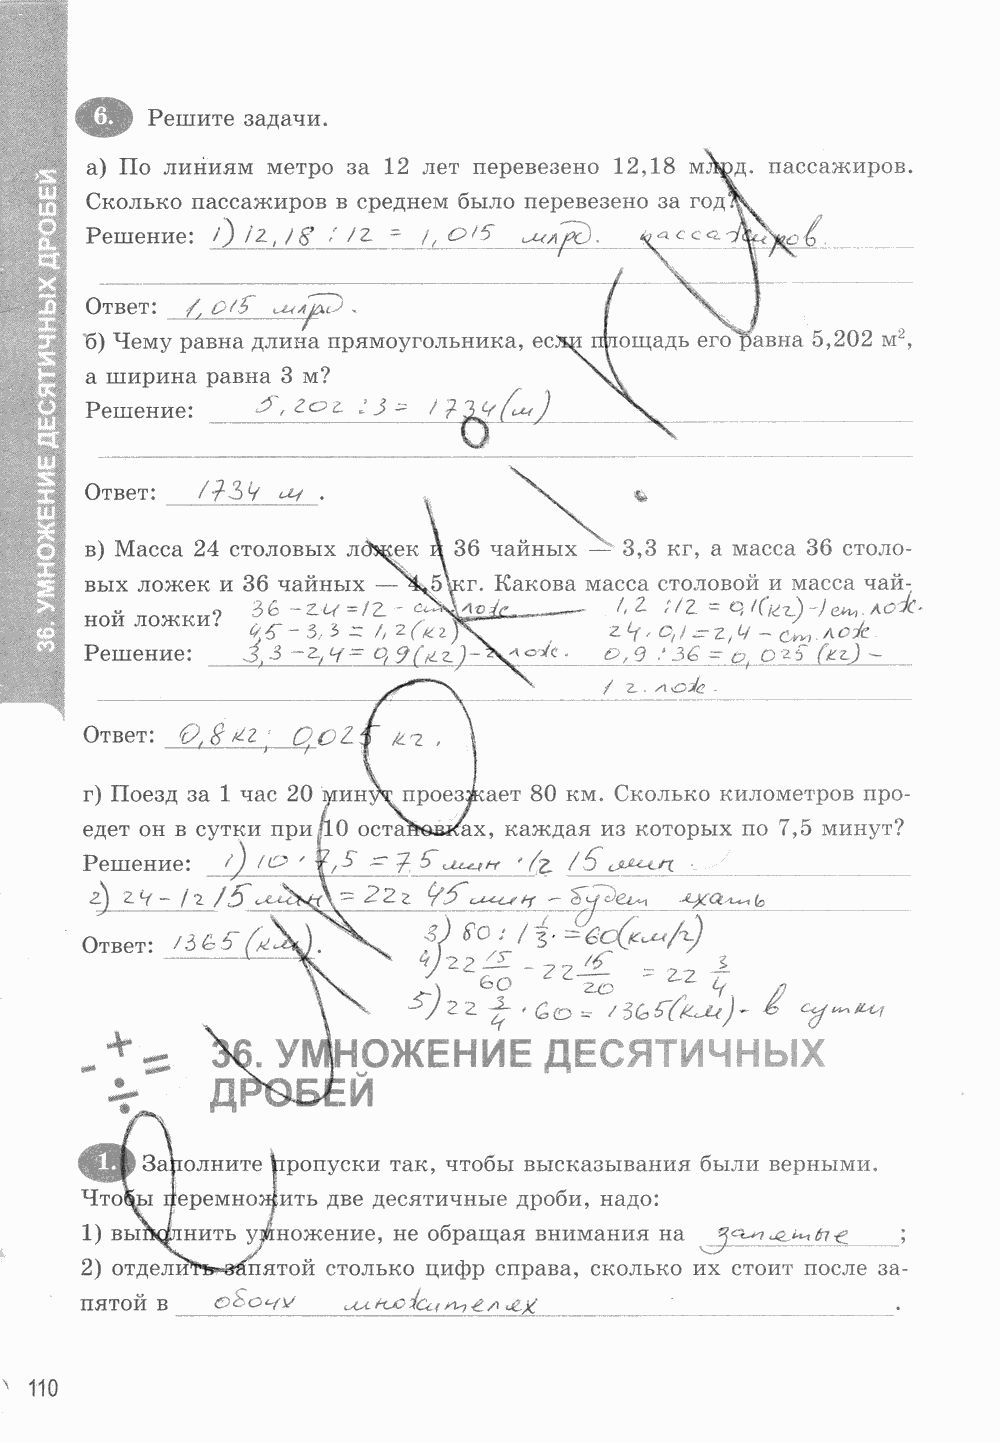 36. УМНОЖЕНИЕ ДЕСЯТИЧНЫХ ДРОБЕЙ
6. Решите задачи.
а) По линиям метро за 12 лет перевезено 12,18 млрд. пассажиров.
Сколько пассажиров в среднем было перевезено за год?
Решение: 1) 12,18 : 12 = 1,015 млрд. пассажиров.
Ответ: 1,015 млрд.
б) Чему равна длина прямоугольника, если площадь его равна 5,202 м²,
а ширина равна 3 м?
Решение: 5,202 : 3 = 1734 (м)
Ответ: 1734 м.
в) Масса 24 столовых ложек и 36 чайных — 3,3 кг, а масса 36 столо-
вых ложек и 36 чайных — 4,5 кг. Какова масса столовой и масса чай-
ной ложки? 36 - 24 = 12 - ст. лож. 1,2 : 12 = 0,1 (кг) - 1 ст. лож.
4,5 - 3,3 = 1,2 (кг) 24 · 0,1 = 2,4 - ст. лож.
Решение: 3,3 - 2,4 = 0,9 (кг) - ч. лож. 0,9 : 36 = 0,025 (кг) -
1 ч. лож.
Ответ: 0,8 кг; 0,025 кг.
г) Поезд за 1 час 20 минут проезжает 80 км. Сколько километров про-
едет он в сутки при 10 остановках, каждая из которых по 7,5 минут?
Решение: 1) 10 · 7,5 = 75 мин · 1ч 15 мин.
2) 24 - 1ч 15 мин = 22ч 45 мин - будет ехать
Ответ: 1365 (км). 3) 80 : 1 1/3 · = 60 (км/ч)
4) 22 15/60 - 22 15/20 = 22 3/4
5) 22 3/4 · 60 = 1365 (км) - в сутки
36. УМНОЖЕНИЕ ДЕСЯТИЧНЫХ
ДРОБЕЙ
1. Заполните пропуски так, чтобы высказывания были верными.
Чтобы перемножить две десятичные дроби, надо:
1) выполнить умножение, не обращая внимания на запятые ;
2) отделить запятой столько цифр справа, сколько их стоит после за-
пятой в обоих множителях .
110